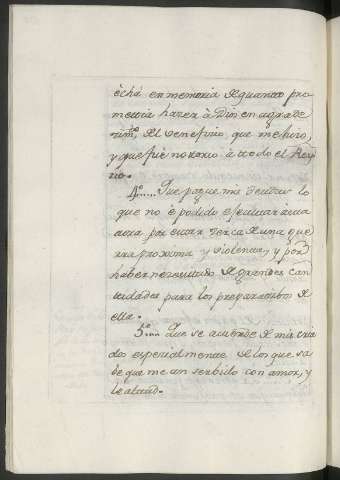 écha en memoria de quanto pro
metia hazer à Dios en agrade
zim.to del beneficio que me hizo,
y que fue notorio à todo el Rey
no.
4.º..... Que pague mis deudas lo
que no é podido efectuar asta
aora por estar zerca de una gue
rra proxima y violenta, y por
haber nezesitado de grandes can
tidades para los preparatibos de
ella.
5.º.... Que se acuerde de mis cria
do espezialmente de los que sa
be que me an serbido con amor, y
lealtad.